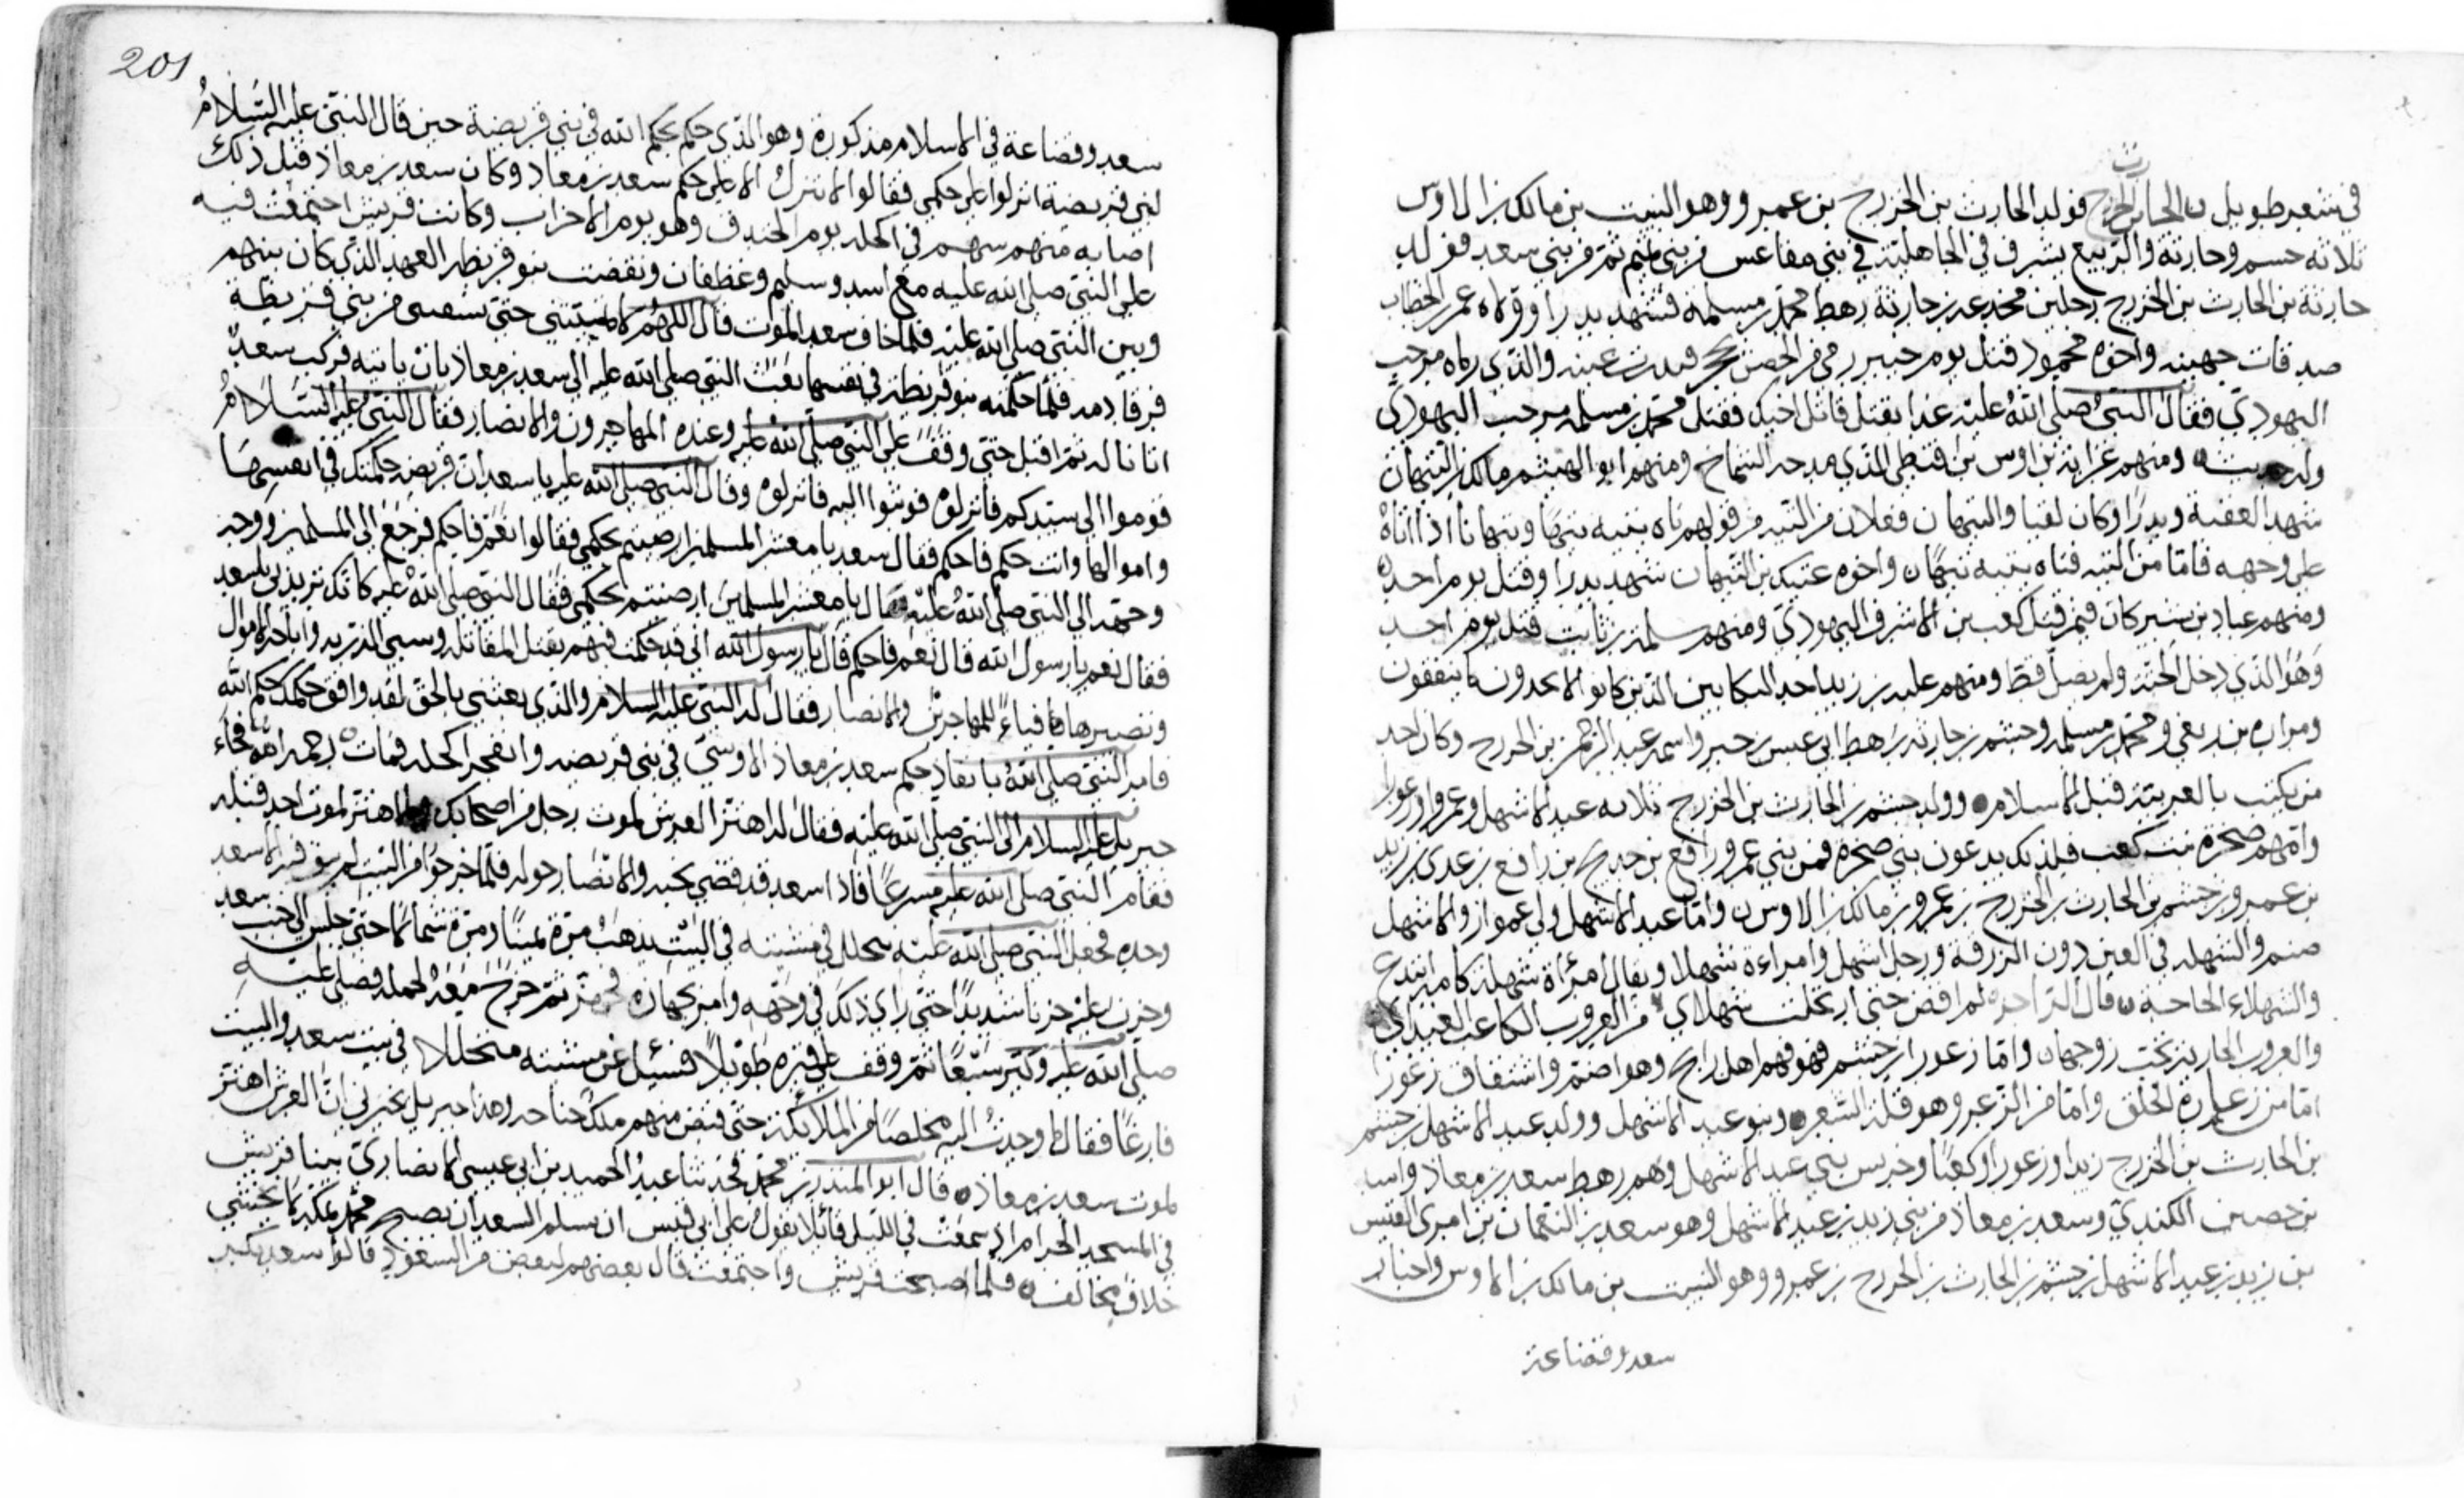 رث
في شعر طويل ن الحارث الخزرج فولد الحارث بن الخزرج بن عمرو وهو النبيت بن مالك بن الاوس
ثلاثة جشم وحارثة والربيع بشرف في الجاهلية في بني مقاعس من بني تميم ثم من بني سعد فولد
حارثة بن الحارث بن الخزرج رجلين مجدعه بن حارثة رهط محمد بن مسلمة فشهد بدرا وولاه عمر بن الخطاب
صدقات جهينه واخوه محمود قتل يوم خيبر رمي من الحصن بحجر فندرت عينه والذي رماه مرحب
اليهودي فقال النبي صلى الله عليه غدا يقتل قاتل اخيك فقتل محمد بن مسلمه مرحب اليهودي
وله حديث ومنهم عرابة بن اوس بن اقيظي الذي مدحه الشماخ ومنهم ابو الهيثم مالك بن التيهان
شهد العقبة وبدرا وكان نقيبا والتيهان فعلان من التيه من قولهم تاه يتيه تيها وتيهانا اذا اتاه
على وجهه فاما من التيه فتاه يتيه تيهان واخوه عتيك بن التيهان شهد بدرا وقتل يوم احد
ومنهم عباد بن بشر كان فيمن قتل كعب بن الاشرف اليهودي ومنهم سلمة بن ثابت قتل يوم احد
وهو الذي دخل الجنة ولم يصل قط ومنهم علبه بن زيد احد البكايين الذين كانوا لا يجدون ما ينفقون
ومراره بن ربعي ومحمد بن مسلمه وجشم بن حارثه رهط ابي عبس بن جبر واسمه عبد الرحمن بن الخزرج وكان احد
من يكتب بالعربية قبل الاسلام وولد جشم بن الحارث بن الخزرج ثلاثه عبد الاشهل وعمرو وزعورا
وامهم صخره بنت كعب فلذلك يدعون بني صخره فمن بني عمرو رافع بن خديج بن رافع بن عدي بن زيد
بن عمرو بن جشم بن الحارث بن الخزرج بن عمرو بن مالك بن الاوس ن واما عبد الاشهل والاشهل
صنم والشهله في العين دون الزرقة ورجل اشهل وامراءة شهلا ويقال امرأة شهلة كاملة
والشهلاء الحاجة ن قال الراجز لم اقض حتى ارتحلت شهلاي من العروب الكاعب الغيداي
والعروب الجارية تحت زوجها واما زعورا بن جشم فهو فهم اهل راتج وهو اضم واشتقاق زعورا
اما من زعارة الخلق واما من الزعر وهو قلة الشعر وبنو عبد الاشهل وولد عبد الاشهل بن جشم
بن الحارث بن الخزرج زيدا وزعورا وكعبا وحريس بني عبد الاشهل وهم رهط سعد بن معاذ واسيد
بن حصين الكندي وسعد بن معاذ من بني زيد بن عبد الاشهل وهو سعد بن النعمان بن امرئ القيس
بن زيد بن عبد الاشهل بن جشم بن الحارث بن الخزرج بن عمرو وهو النبيت بن مالك بن الاوس واخبار
سعد وقضاعة
201
سعد وقضاعة في الاسلام مذكورة وهو الذي حكم بحكم الله في بني قريضة حين قال النبي عليه السلام
لبني قريضة انزلوا على حكمي فقالوا لا ننزل الا على حكم سعد بن معاذ وكان سعد بن معاذ قبل ذلك
اصابه منهم سهم في اكحله يوم الخندق وهو يوم الاحزاب وكانت قريش اجتمعت فيه
على النبي صلى الله عليه مع اسد وسليم وغطفان ونقضت بنو قريظه العهد الذي كان بينهم
وبين النبي صلى الله عليه فلما خاف سعد الموت قال اللهم لا تميتني حتى تشفيني من بني قريظة
فرقا دمه فلما حكمته بنو قريظة في نفسها بعث النبي صلى الله عليه الى سعد بن معاذ بان ياتيه فركب سعد
اتانا له ثم اقبل حتى وقف على النبي صلى الله عليه وعنده المهاجرون والانصار فقال النبي عليه السلام
قوموا الى سيدكم فانزلوه فوثبوا اليه فانزلوه وقال النبي صلى الله عليه يا سعد ان قريضه حكمتك في انفسها
واموالها وانت حكم فاحكم فقال سعد يا معشر المسلمين ارضيتم بحكمي فقالوا نعم فاحكم فرجع الى المسلمين ووجه
وجهه الى النبي صلى الله عليه قال يا معشر المسلمين ارضيتم بحكمي فقال النبي صلى الله عليه كانك تريدني يا سعد
فقال نعم يا رسول الله قال نعم فاحكم قال يا رسول الله اني قد حكمت فيهم بقتل المقاتله وسبي الذريه واباحه الاموال
وتصييرها فياءً للمهاجرين والانصار فقال له النبي عليه السلام والذي بعثني بالحق لقد وافق حكمك حكم الله
فامر النبي صلى الله بانفاذ حكم سعد بن معاذ الاوسي في بني قريضه وانفجر اكحله فمات رحمه الله فجاء
جبريل عليه السلام الى النبي صلى الله عليه فقال له اهتز العرش لموت رجل من اصحابك ما اهتز لموت احد قبله
فقام النبي صلى الله عليه مسرعًا فاذا سعد قد قضى نحبه والانصار حوله فلما خرجوا من البيت لم يبق فيه الا سعد
وحده فجعل النبي صلى الله عليه يتخلل في مشيته في البيت يذهب مرة يمينًا ومرة شمالًا حتى جلس الى جنب سعد
وحزن عليه حزنا شديدًا حتى راي ذلك في وجهه وامر بجهازه فجهز ثم خرج معه لحمله فصلى عليه
صلى الله عليه وكبر سبعًا ثم وقف على قبره طويلًا فسئل عن مشيته متخللا في بيت سعد والبيت
فارغًا فقال ما وجدت اليه مخلصًا من الملائكة حتى قبض منهم ملك جناحه وهذا جبريل يخبرني ان العرش اهتز
لموت سعد بن معاذ قال ابو المنذر محمد فحدثنا عبد الحميد بن ابي عيسى الانصاري بينا قريش
في المسجد الحرام اذ سمعت في الليل قائلا يقول على ابي قبيس ان يسلم السعدان يصبح محمد بمكة لا يخشى
خلاف مخالف فلما اصبحت قريش واجتمعت قال بعضهم لبعض من السعود قالوا سعد بكر